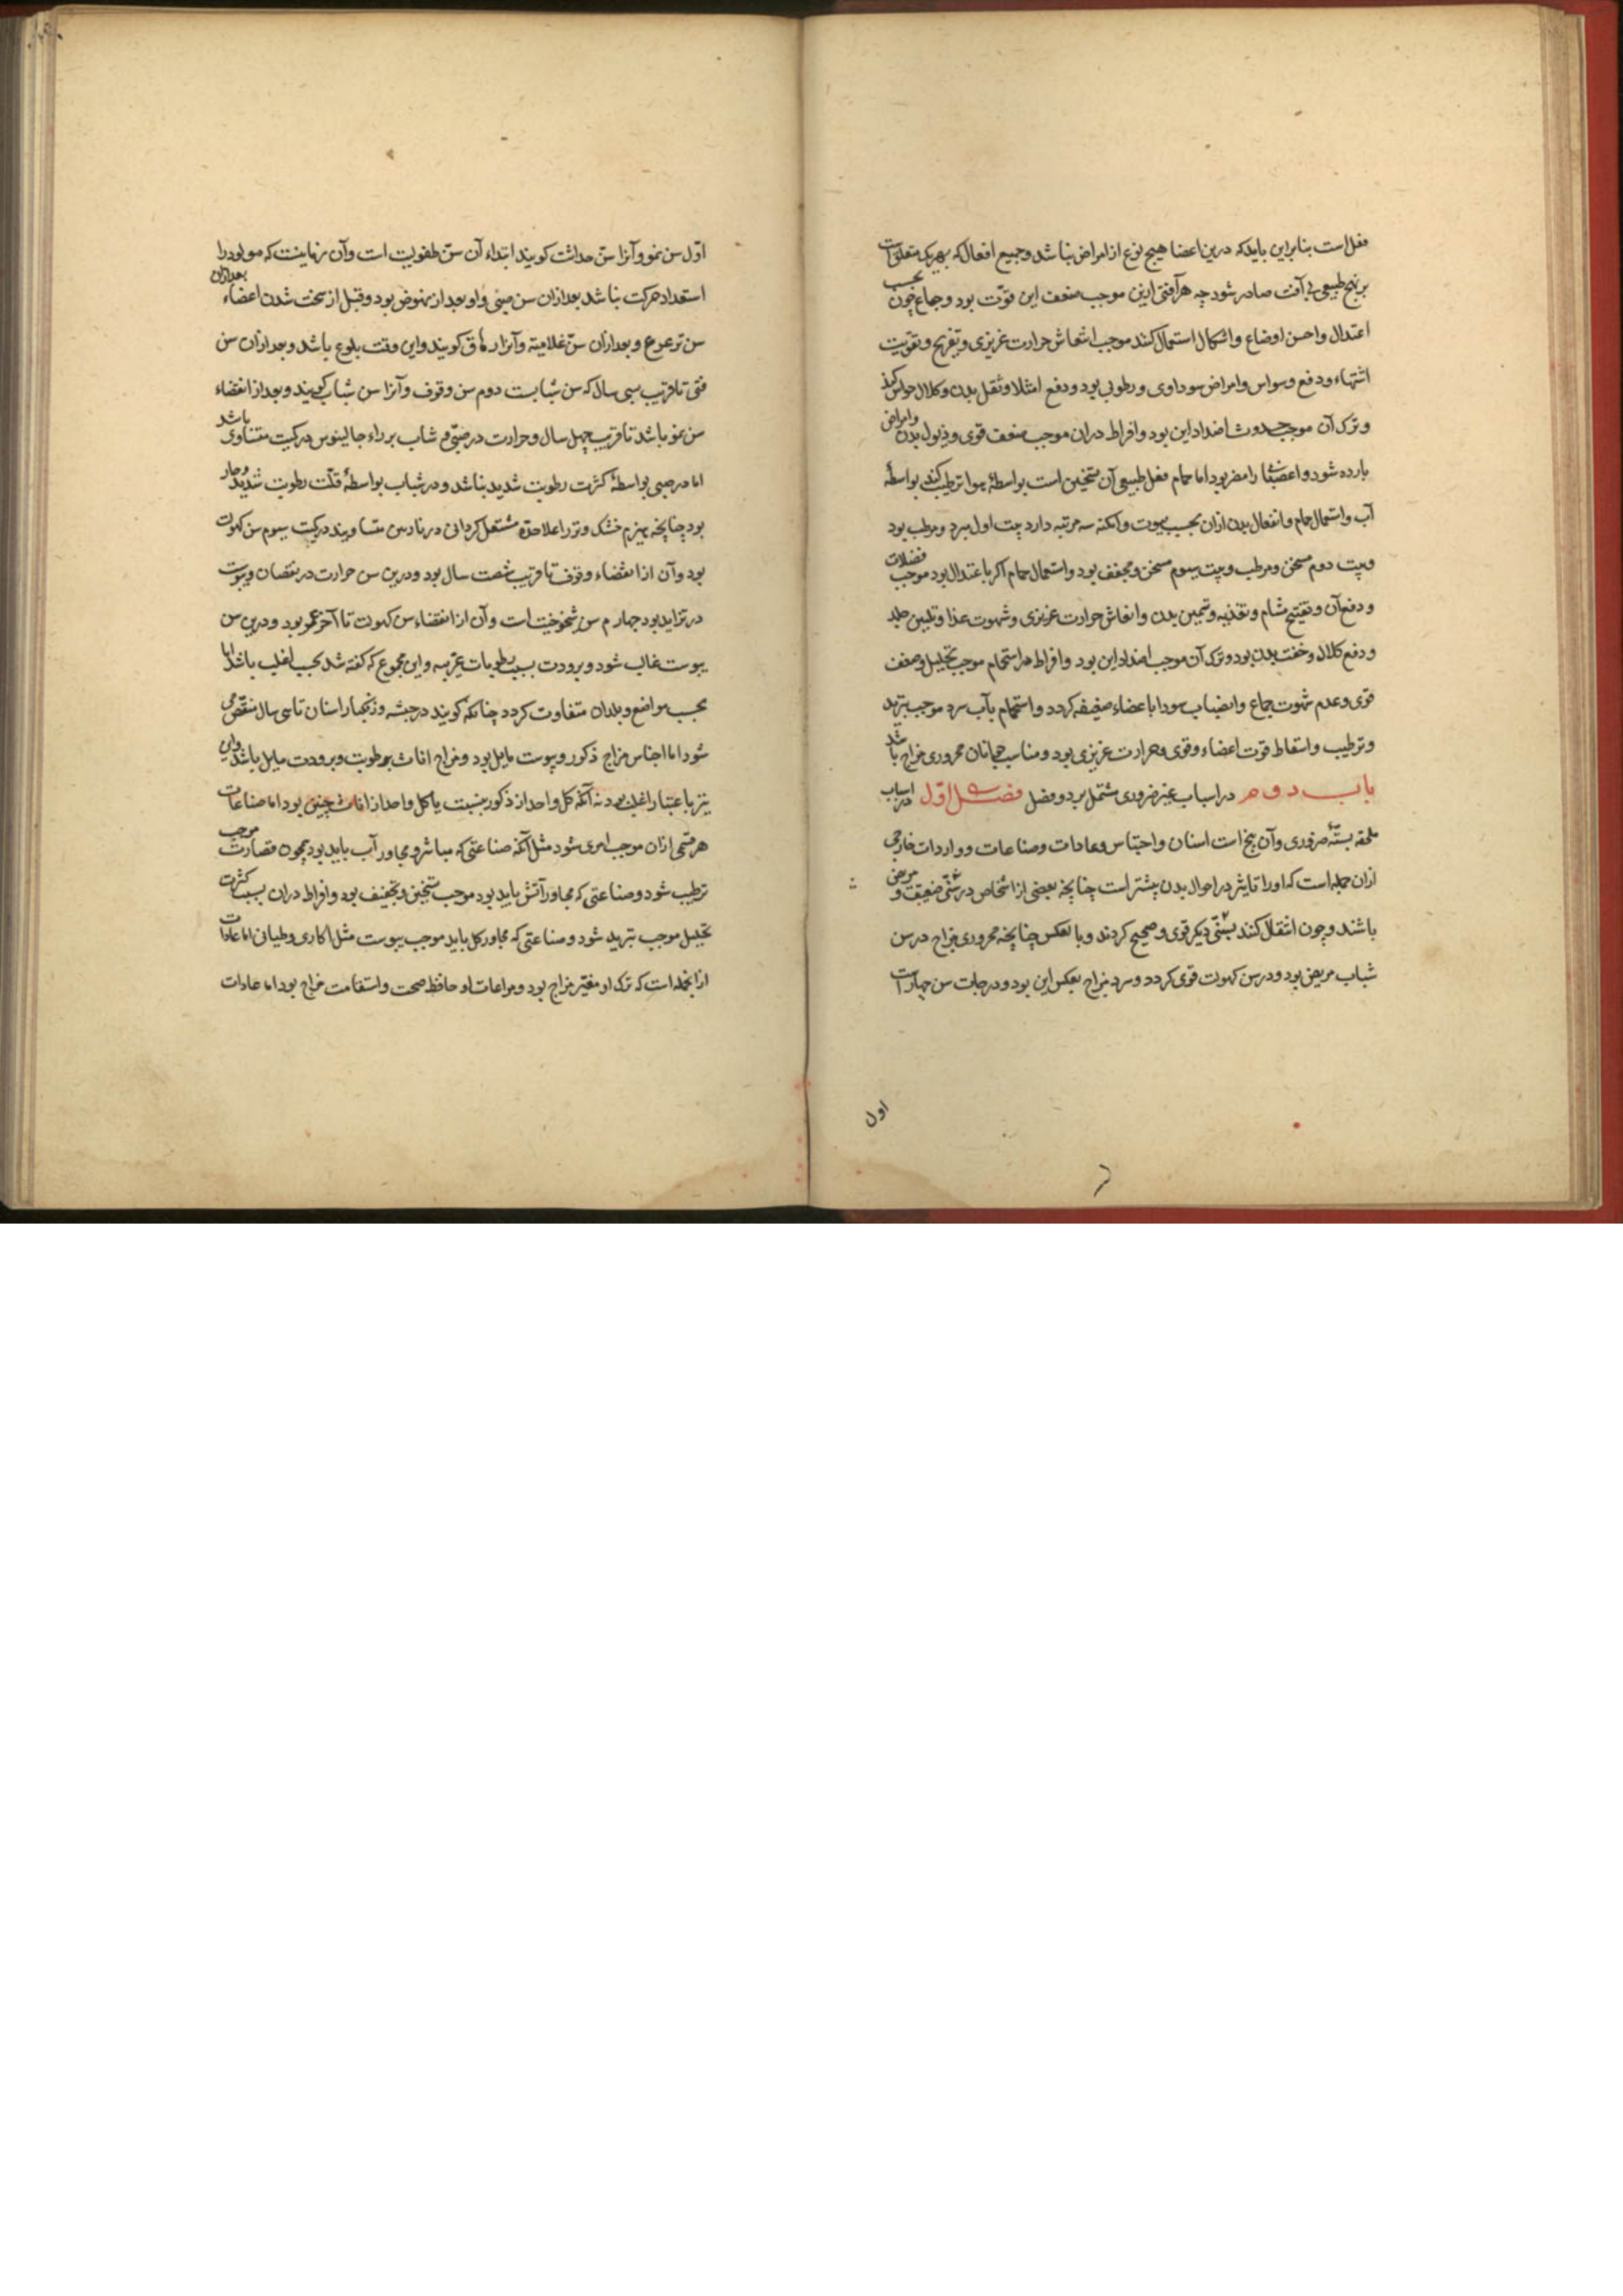 فعل است بنابراین باید که درین اعضا هیچ نوع از امراض نباشد و جمیع افعال که بهر یک متعلق است
بر نهج طبیعی بی آفت صادر شود چه هر آفتی ازین موجب ضعف این قوّت بود و جماع چون بحسب
اعتدال و احسن اوضاع و اشکال استعمال کنند موجب انتعاش حرارت غریزی و تفریح و تقویت
اشتهاء و دفع وسواس و امراض سوداوی و رطوبی بود و دفع امتلا و ثقل بدن و کلال حواس کند
و ترک آن موجب حدوث اضداد این بود و افراط دران موجب ضعف قوی و ذبول بدن و امراض
بارده شود و اعضا را مضر بود اما حمام فعل طبیعی آن تسخین است بواسطهٔ هوا و ترطیب کند بواسطهٔ
آب و استعمال حمام و انفعال بدن ازان بحسب بیوت و امکنه سه مرتبه دارد بیت اول مبرد و مرطب بود
و بیت دوم مسخن و مرطب و بیت سیوم مسخن و مجفف بود و استعمال حمام اکر باعتدال بود موجب فضلات
و دفع آن و تفتیح مسام و تغذیه و تسمین بدن و انعاش حرارت غریزی و شهوت غذا و تلیین جلد
و دفع کلال و خفت بدن بود و ترک آن موجب اضداد این بود و افراط در استحمام موجب تحلیل و ضعف
قوی و عدم شهوت جماع و انصباب سودا باعضاء ضعیفه کردد و استحمام بآب سرد موجب تبرید
و ترطیب و اسقاط قوت اعضاء و قوی و حرارت غریزی بود و مناسب جوانان محروری مزاج باشد
باب دوم در اسباب غیر ضروری مشتمل بر دو فصل فصل اول در اسباب
ملحقه بستهٔ ضروری و آن پنج است اسنان و اجناس و عادات و صناعات و واردات خارجی
ازان جمله است که او را تاثیر در احوال بدن بیشتر است چنانچه بعضی از اشخاص در سنّی ضعیف و مریض
باشند و چون انتقال کنند بسنّی دیکر قوی و صحیح کردند و بالعکس چنانچه محروری مزاج در سن
شباب مریض بود و در سن کهولت قوی کردد و سرد مزاج بعکس این بود و درجات سن چهار است
اول
اوّل سن نمو و آنرا سن حداثت کویند ابتداء آن سن طفولیت است و آن زمانیست که مولود را
استعداد حرکت نباشد بعد ازان سن صبی و او بعد از نهوض بود و قبل از سخت شدن اعضاء بعد ازان
سن ترعرع و بعد ازان سن غلامیه و آنرا رهاق کویند و این وقت بلوغ باشد و بعد ازان سن
فتی تا قریب سی سال که سن شبابست دوم سن وقوف و آنرا سن شباب کویند و بعد از انقضاء
سن نمو باشد تا قریب چهل سال و حرارت در صبّی و شاب بر راء جالینوس در کمیت متساوی باشد
اما در صبی بواسطهٔ کثرت رطوبت شدید نباشد و در شباب بواسطهٔ قلّت رطوبت شدید و حار
بود چنانچه هیزم خشک و تر را علاحده مشتعل کردانی در نارس متساویند در کمیت سیوم سن کهولت
بود و آن از انقضاء وقوف تا قریب شصت سال بود و درین سن حرارت در نقصان و یبوست
در تزاید بود چهارم سن شیخوخیت است و آن از انقضاء سن کهولت تا آخر عمر بود و درین سن
یبوست غالب شود و برودت بسبب رطوبات غریبه و این مجموع که کفته شد بحسب اغلب باشد اما
بحسب مواضع و بلدان متفاوت کردد چنانکه کویند در حبشه و زنکبار اسنان تا سی سال منقضی
شود اما اجناس مزاج ذکور و یبوست مایل بود و مزاج اناث برطوبت و برودت مایل باشد و این
نیز باعتبار اغلب بود نه آنکه کل واحد از ذکور بنسبت با کل واحد از اناث چنین بود اما صناعات
هر قسمی ازان موجب امری شود مثل آنکه صناعتی که مباشر و مجاور آب باید بود همچون قصارت موجب
ترطیب شود و صناعتی که مجاور آتش باید بود موجب تسخین و تجفیف بود و افراط دران بسبب کثرت
تحلیل موجب تبرید شود و صناعتی که مجاور کل باید موجب یبوست مثل اکاری و طیانی اما عادات
از انجمله است که ترک او مغیّر مزاج بود و مراعات او حافظ صحت و استقامت مزاج بود اما عادات